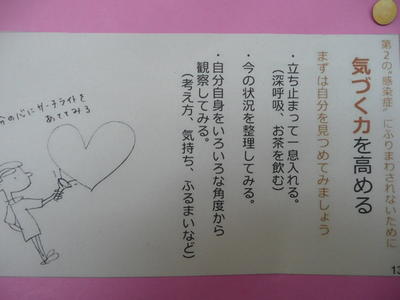 第2の“感染症”にふりまわされないために
気づく力を高める
まずは自分を見つめてみましょう
・立ち止まって一息入れる。
(深呼吸、お茶を飲む)
・今の状況を整理してみる。
・自分自身をいろいろな角度から
観察してみる。
(考え方、気持ち、ふるまいなど)
の心にサーチライトを
あててみる
13